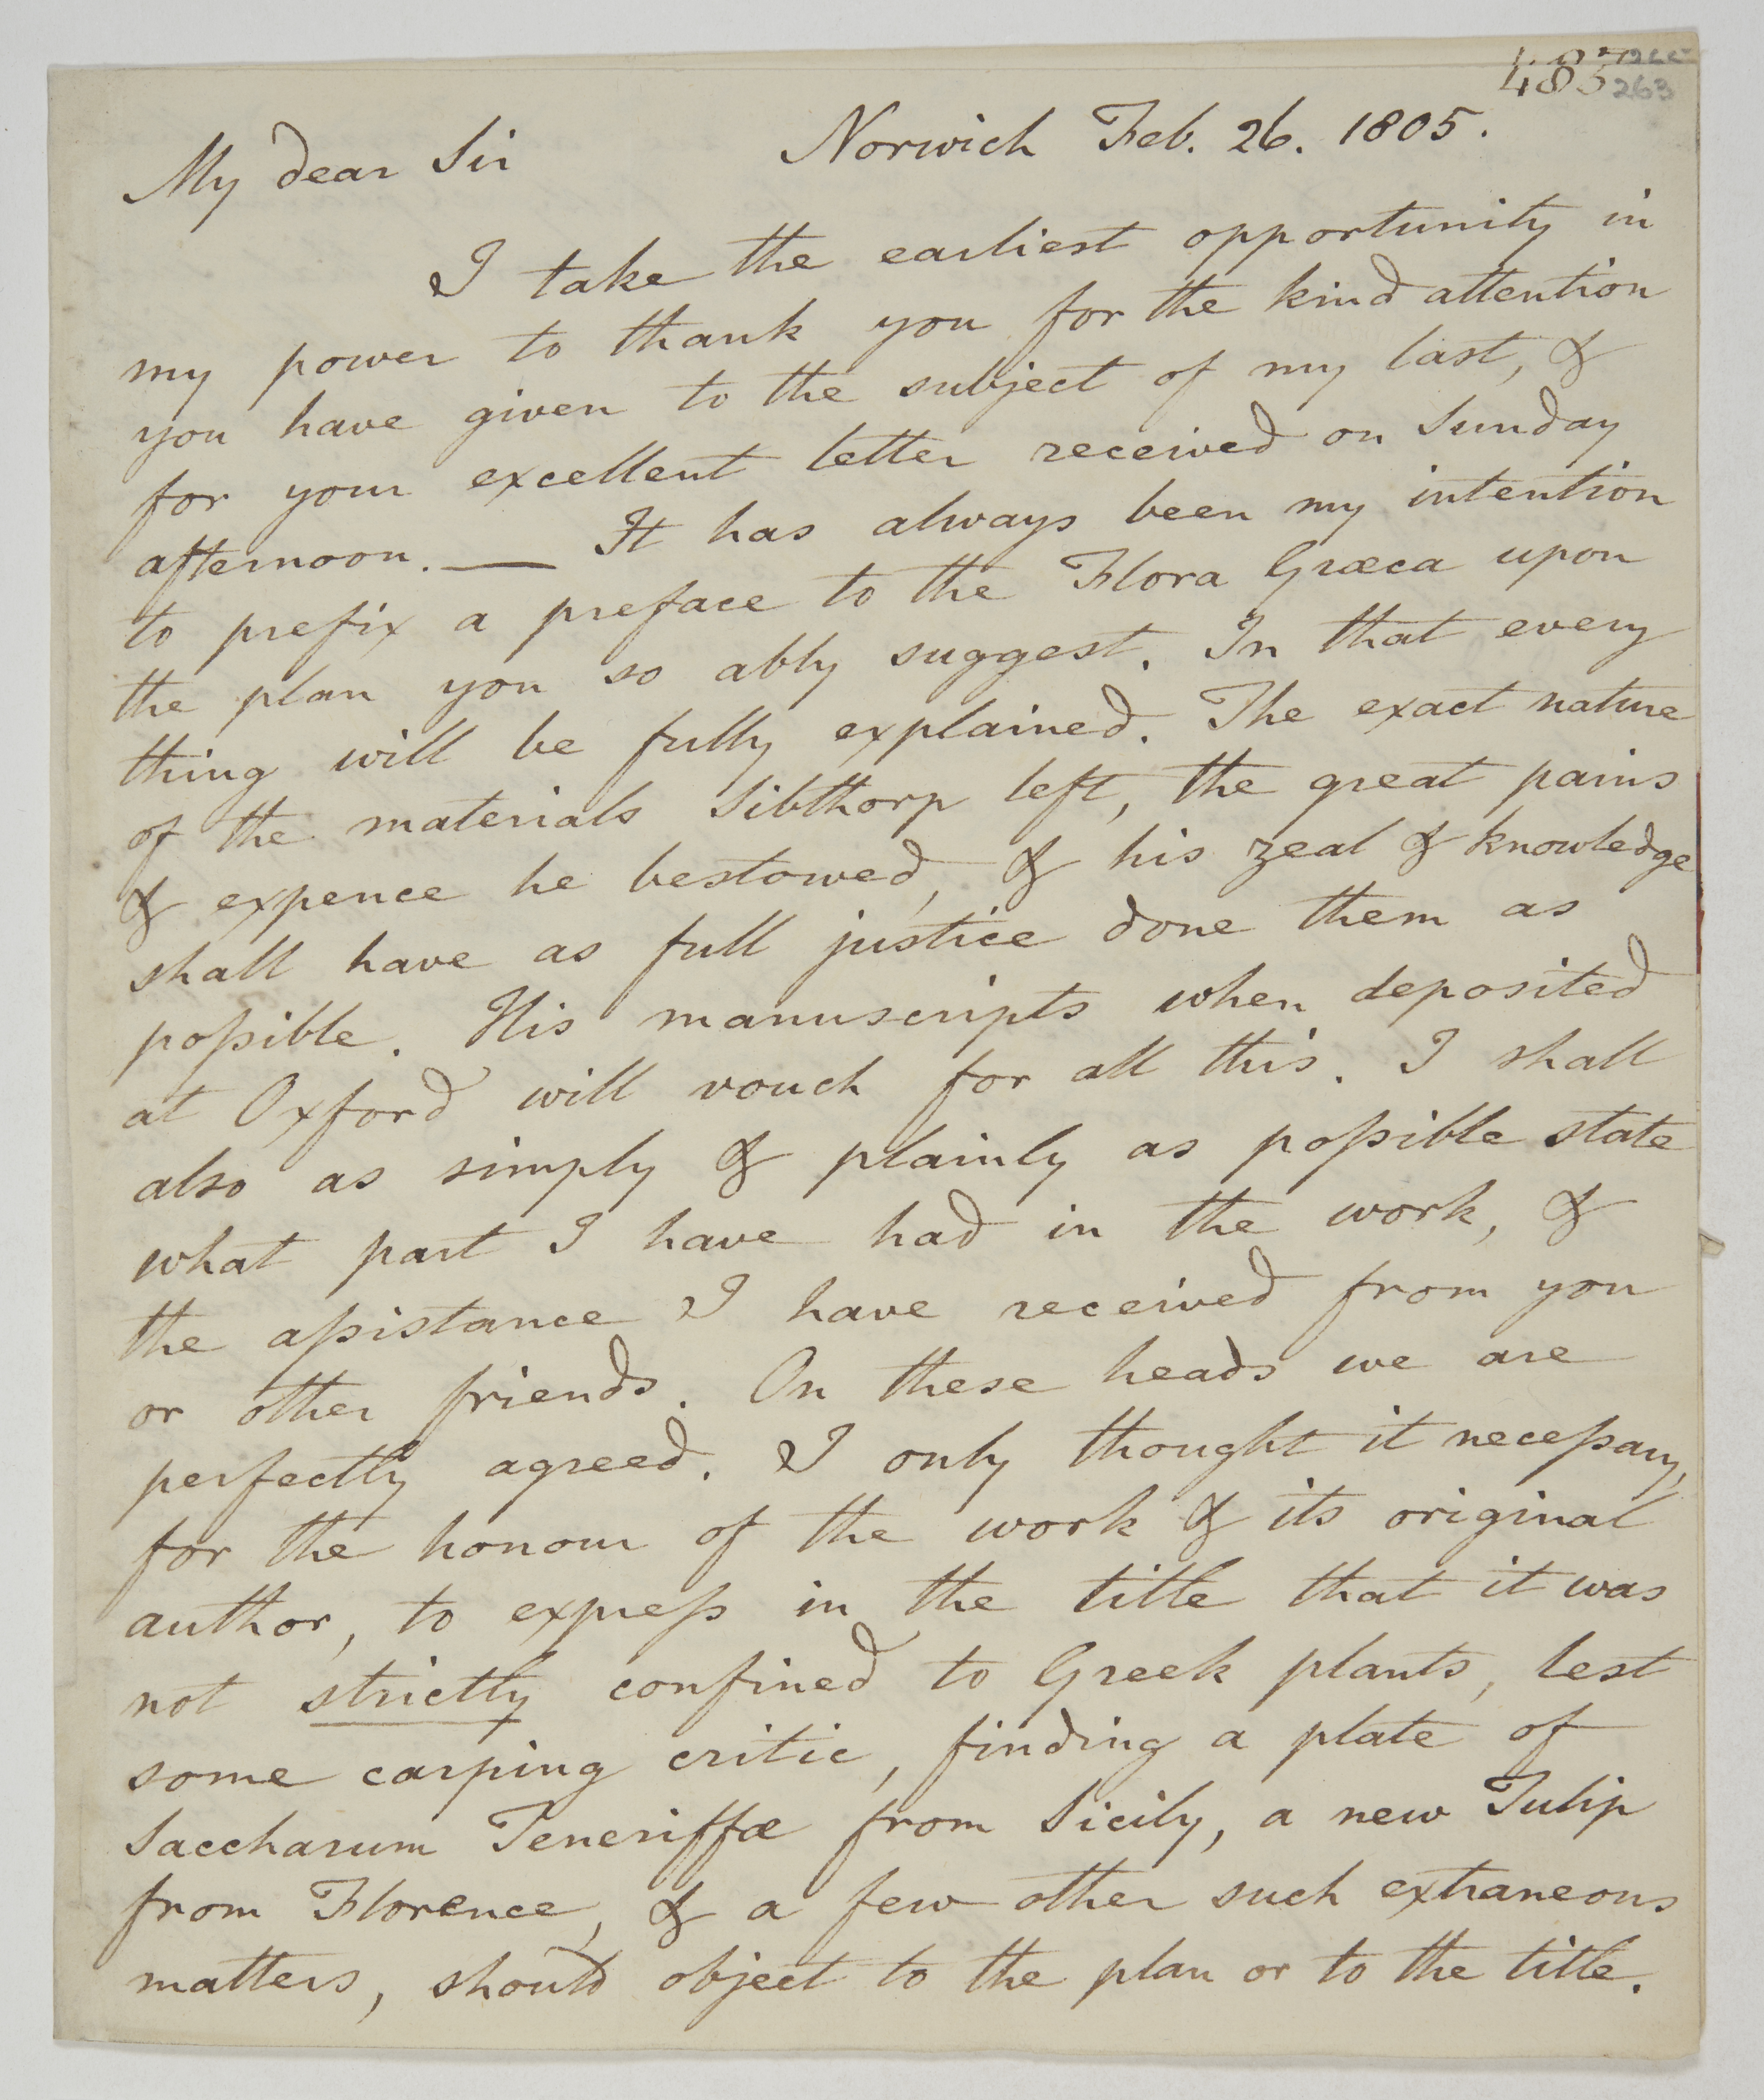 483
263
Norwich Feb. 26. 1805.
My dear Sir
I take the earliest opportunity in
my power to thank you for the kind attention
you have given to the subject of my last, &
for your excellent letter received on Sunday
afternoon. — It has always been my intention
to prefix a preface to the Flora Græca upon
the plan you so ably suggest. In that every
thing will be fully explained. The exact nature
of the materials Sibthorp left, the great pains
& expence he bestowed, & his zeal & knowledge
shall have as full justice done them as
poſsible. His manuscripts when deposited
at Oxford will vouch for all this. I shall
also as simply & plainly as poſsible state
what part I have had in the work, &
the aſsistance I have received from you
or other friends. On these heads we are
perfectly agreed. I only thought it neceſsary,
for the honour of the work & its original
author, to expreſs in the title that it was
not strictly confined to Greek plants, lest
some carping critic, finding a plate of
Saccharum Teneriffæ from Sicily, a new Tulip
from Florence, & a few other such extraneous
matters, should object to the plan or to the title.